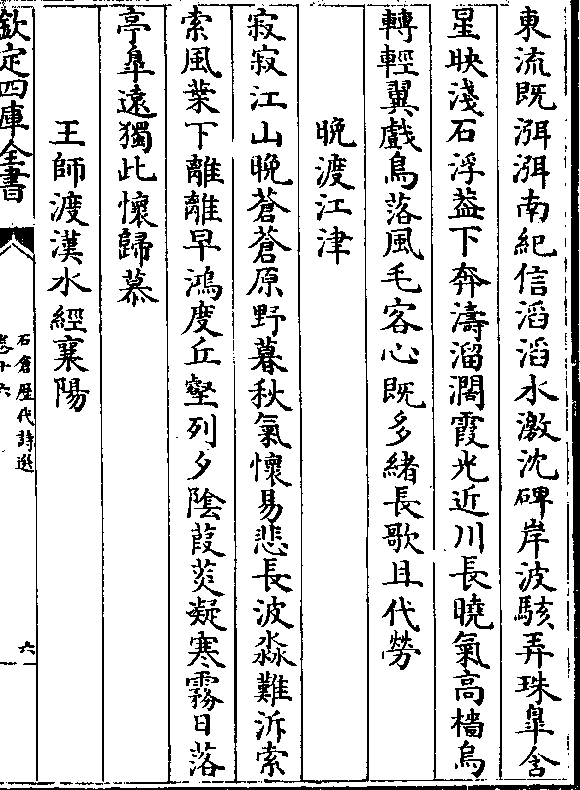 東流既㳽㳽南紀信滔滔水激沈碑岸波駭弄珠臯含
星映淺石浮葢下奔濤溜濶霞光近川長曉氣高檣烏
轉輕翼戲鳥落風毛客心既多緒長歌且代勞
晚渡江津
寂寂江山晚蒼蒼原野暮秋氣懷易悲長波淼難泝索
索風葉下離離早鴻度丘壑列夕陰葭菼凝寒霧日落
亭臯遠獨此懷歸慕
王師渡漢水經襄陽
欽定四庫全書
石倉歴代詩選
卷十六
六